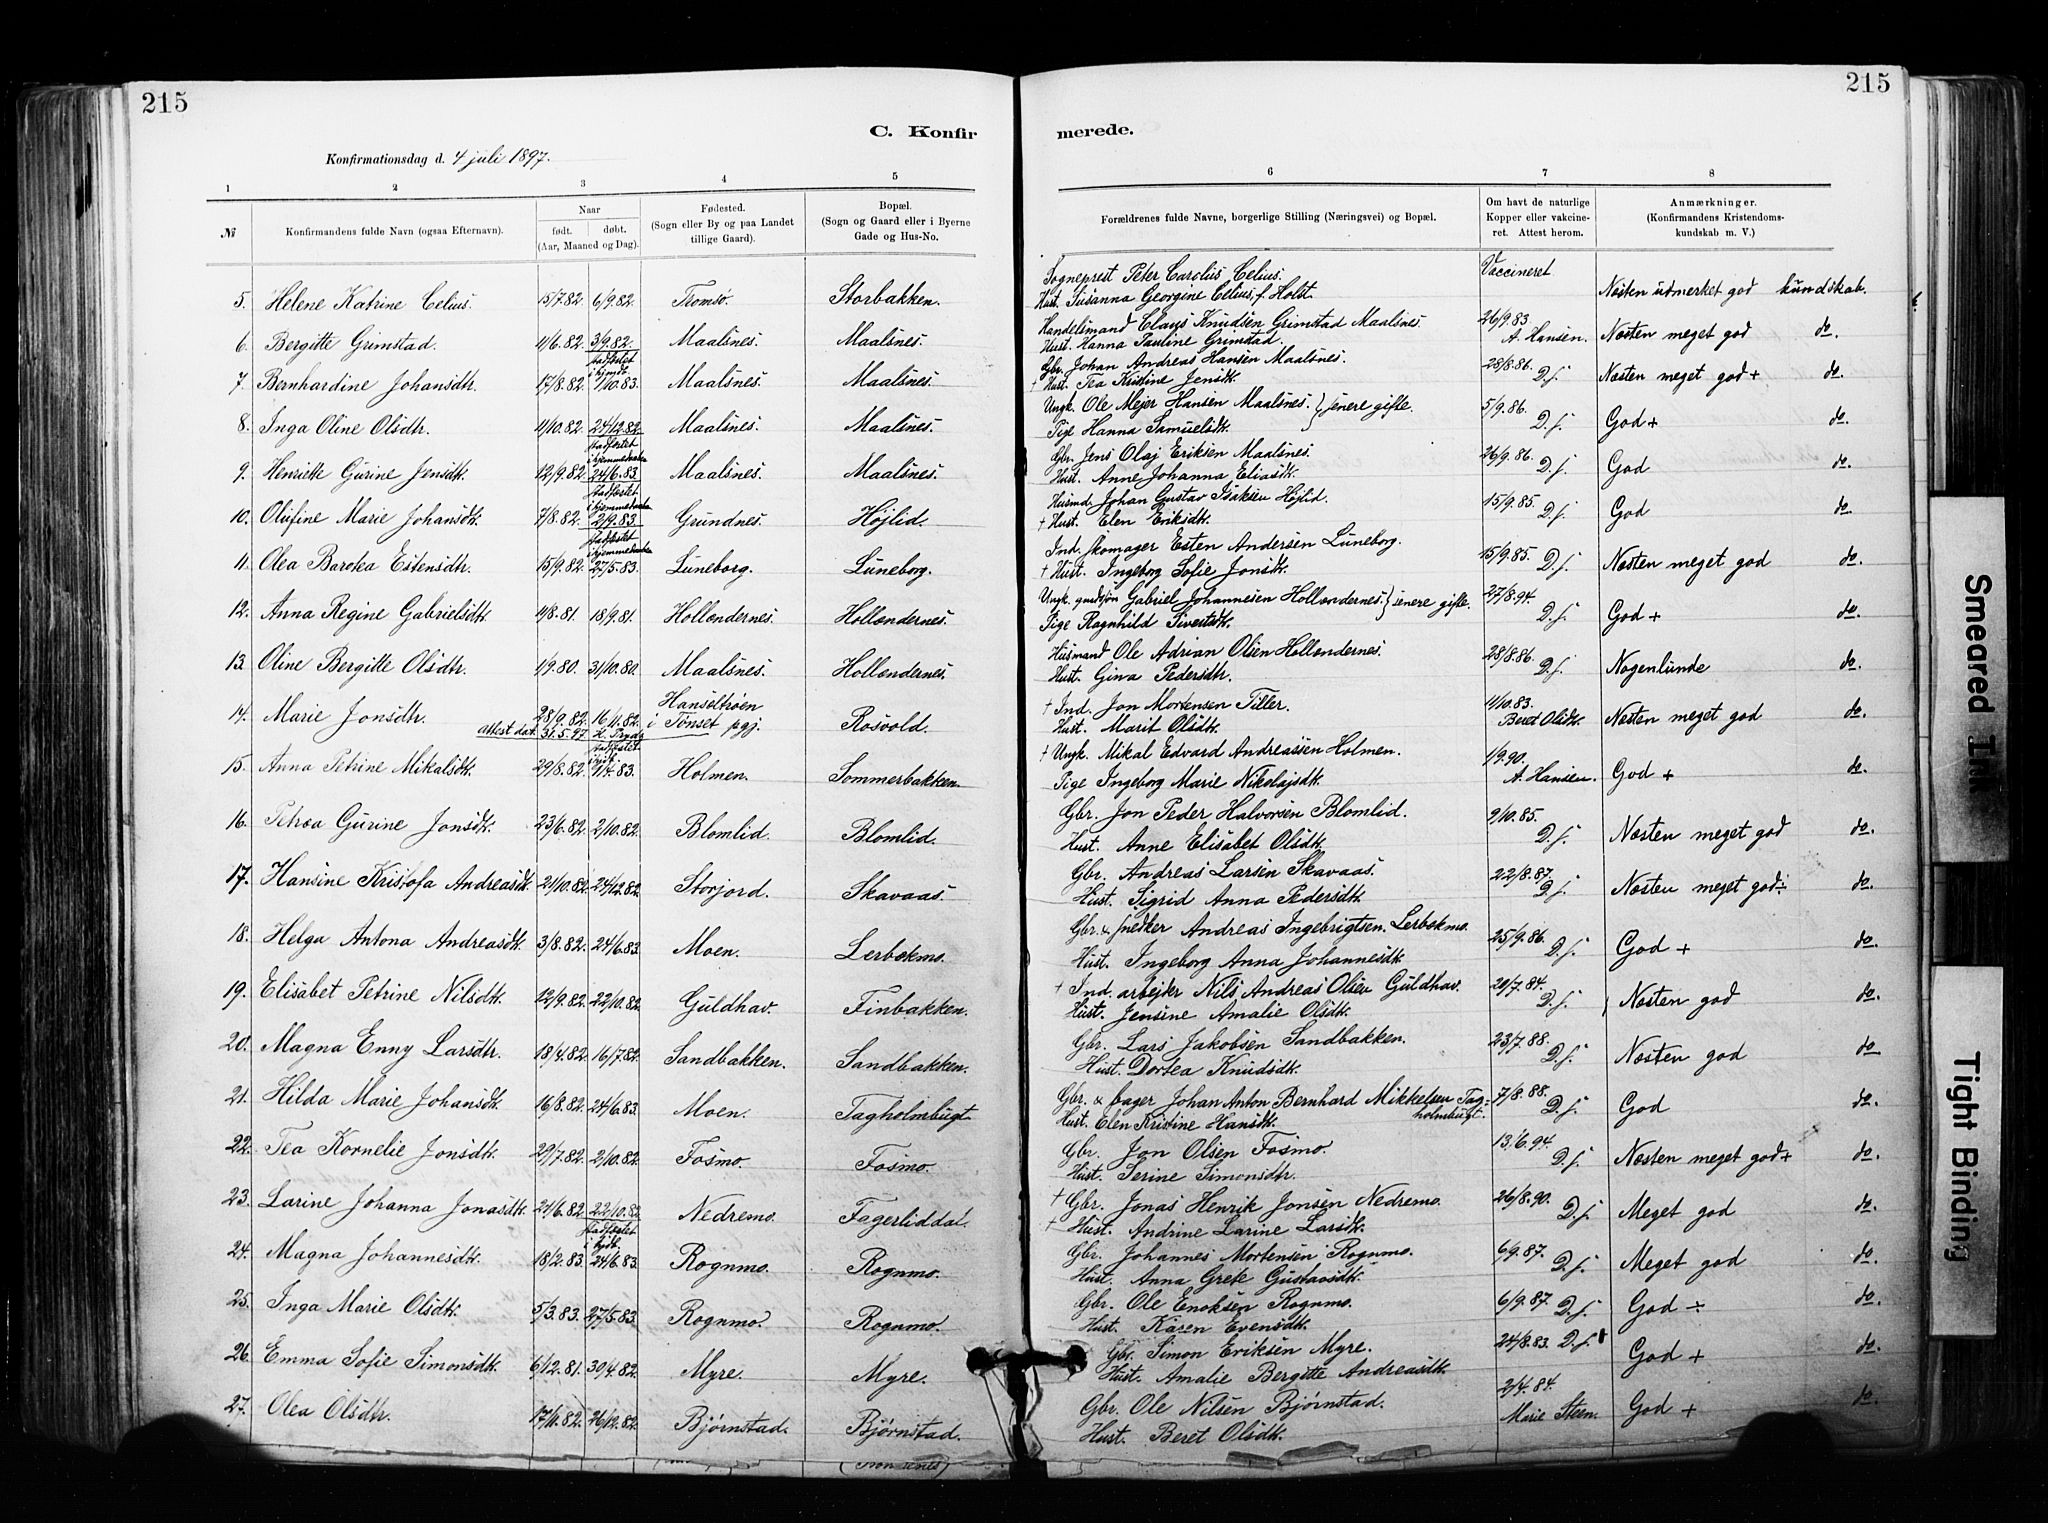 215
215
C. Konfir
merede.
Konfirmationsdag d. 4 juli 1897.
1 2 3 4 5 6 7 8
№
Konfirmandens fulde Navn (ogsaa Efternavn).
Naar
født. døbt.
(Aar, Maaned og Dag).
Fødested.
(Sogn eller By og paa Landet
tillige Gaard).
Bopæl.
(Sogn og Gaard eller i Byerne
Gade og Hus-No.
Forældrenes fulde Navne, borgerlige Stilling (Næringsvei) og Bopæl.
Om havt de naturlige
Kopper eller vakcine-
ret. Attest herom.
Anmærkninger.
(Konfirmandens Kristendoms-
kundskab m. V.)
5. Helene Katrine Celius. 15/7.82. 6/9.82. Tromsø. Storbakken. Sogneprest Peter Carolus Celius. Vaccineret
Hust. Susanna Georgine Celius, f. Holst. Næsten udmerket god kundskab.
6. Bergitte Grimstad. 11/6.82. 3/9.82. Maalsnes. Maalsnes. Handelsmand Claus Knudsen Grimstad Maalsnes. 26/9.83
Hust. Hanna Pauline Grimstad. A. Hansen. Næsten meget god do.
stadfestet
i hjmdb.
7. Bernhardine Johansdtr. 17/8.82. 1/10.83. Maalsnes. Maalsnes. Gbr. Johan Andreas Hansen Maalsnes. 28/8.86.
† Hust. Tea Kristine Jensdt. D. s. Næsten meget god + do.
8. Inga Oline Olsdtr. 11/10.82. 24/12.82. Maalsnes. Maalsnes. Ungk. Ole Mejer Hansen Maalsnes. } senere gifte. 5/9.86.
Pige Hanna Samuelsdt. D. s. God + do.
stadfestet
i hjemmedaaben
9. Henriette Gurine Jensdt. 12/9.82. 24/6.83. Maalsnes. Maalsnes. Gbr. Jens Olaj Eriksen Maalsnes. 26/9.86.
Hust. Anne Johanna Eliasdt. D. s. God do.
stadfestet
i hjemmedaaben
10. Olufine Marie Johansdt. 7/8.82. 2/9.83. Grundnes. Højlid. Husmd. Johan Gustav Isaksen Højlid. 15/9.85.
† Hust. Elen Eriksdt. D. s. God do.
stadfestet
i hjemmedaaben
11. Olea Barokea Estensdtr. 15/9.82. 27/5.83. Luneborg. Luneborg. Ind. skomager Esten Andersen Luneborg.
† Hust. Ingeborg Sofie Jonsdt. 15/9.85. D. s. Næsten meget god do.
12. Anna Regine Gabrielsdt. 11/8.81. 18/9.81. Hollendernes. Hollendernes. Ungk. gaardsøn Gabriel Johannesen Hollendernes. } senere gifte. 27/8.94.
Pige Ragnhild Sivertsdt. D. s. God + do.
13. Oline Bergitte Olsdtr. 1/9.80. 31/10.80. Maalsnes. Hollendernes. Husmand Ole Adrian Olsen Hollendernes. 28/8.86.
Hust. Gina Pedersdtr. D. s. Nogenlunde do.
14. Marie Jonsdtr. 28/9.82. 16/11.82. Hanseltrøen i Tönset pgj. Rosvold. † Ind. Jon Mortensen Tiller. 11/10.83.
Attest dat. 31.5.97. Hust. Marit Olsdt. Beret Olsdt. Næsten meget god do.
stadfestet
15. Anna Petrine Mikalsdt. 29/8.82. 1/4.83. Holmen. Sommerbakken. † Ungk. Mikal Edvard Andreassen Holmen. 1/9.90.
Pige Ingeborg Marie Nikolajsdt. A. Hansen. God + do.
16. Petrea Gurine Jonsdt. 23/6.82. 2/10.82. Blomlid. Blomlid. Gbr. Jon Peder Halvorsen Blomlid. 9/10.85.
Hust. Anne Elisabet Olsdt. D. s. Næsten meget god do.
17. Hansine Kristofa Andreasdt. 21/10.82. 24/12.82. Storjord. Skavaas. Gbr. Andreas Larsen Skavaas. 22/8.87.
Hust. Sigrid Anna Pedersdt. D. s. Næsten meget god ÷ do.
18. Helga Antona Andreasdt. 3/8.82. 24/6.83. Moen. Lerbekmo. Gbr. & snedker Andreas Ingebrigtsen Lerbekmo. 25/9.86.
Hust. Ingeborg Anna Johannesdt. D. s. God + do.
19. Elisabet Petrine Nilsdt. 12/9.82. 22/10.82. Guldhav. Finbakken. † Ind. arbejder Nils Andreas Olsen Guldhav. 29/7.84.
Hust. Jensine Amalie Olsdt. D. s. Næsten god do.
20. Magna Enny Larsdtr. 18/4.82. 16/7.82. Sandbakken. Sandbakken. Gbr. Lars Jakobsen Sandbakken. 23/7.88.
Hust. Dortea Knudsdt. D. s. Næsten god do
21. Hilda Marie Johansdt. 16/8.82. 24/6.83. Moen. Tagholmbugt. Gbr. & bager Johan Anton Bernhard Mikkelsen Tag- 7/8.88.
holmbugt.
Hust. Elen Kristine Hansdt. D. s. God do.
22. Tea Kornelie Jonsdt. 29/7.82. 2/10.82. Fosmo. Fosmo. Gbr. Jon Olsen Fosmo. 13/6.94.
Hust. Serine Simonsdtr. D. s. Næsten meget god + do.
23. Larine Johanna Jonasdt. 21/6.82. 22/10.82. Nedremo. Fagerliddal. † Gbr. Jonas Henrik Jonsen Nedremo. 26/8.90.
† Hust. Andrine Larine Larsdt. D. s. Meget god do.
stadfestet
i hjdb.
24. Magna Johannesdt. 18/2.83. 24/6.83. Rognmo. Rognmo. Gbr. Johannes Mortensen Rognmo. 6/9.87.
Hust. Anna Grete Gustavsdt. D. s. Meget god do.
25. Inga Marie Olsdt. 5/3.83. 27/5.83. Rognmo. Rognmo. Gbr. Ole Enoksen Rognmo. 6/9.87.
Hust. Karen Evensdt. D. s. God ÷ do.
26. Emma Sofie Simonsdt. 6/12.81. 30/4.82. Myre. Myre. Gbr. Simon Eriksen Myre. 24/8.83. D. s.
Hust. Amalie Bergitte Andreasdt. God + do.
27. Olea Olsdtr. 17/11.82. 26/12.82. Bjørnstad. Bjørnstad. Gbr. Ole Nilsen Bjørnstad. 2/4.84.
Hust. Beret Olsdt. Marie Steen. God + do.
Smeared Ink
Tight Binding